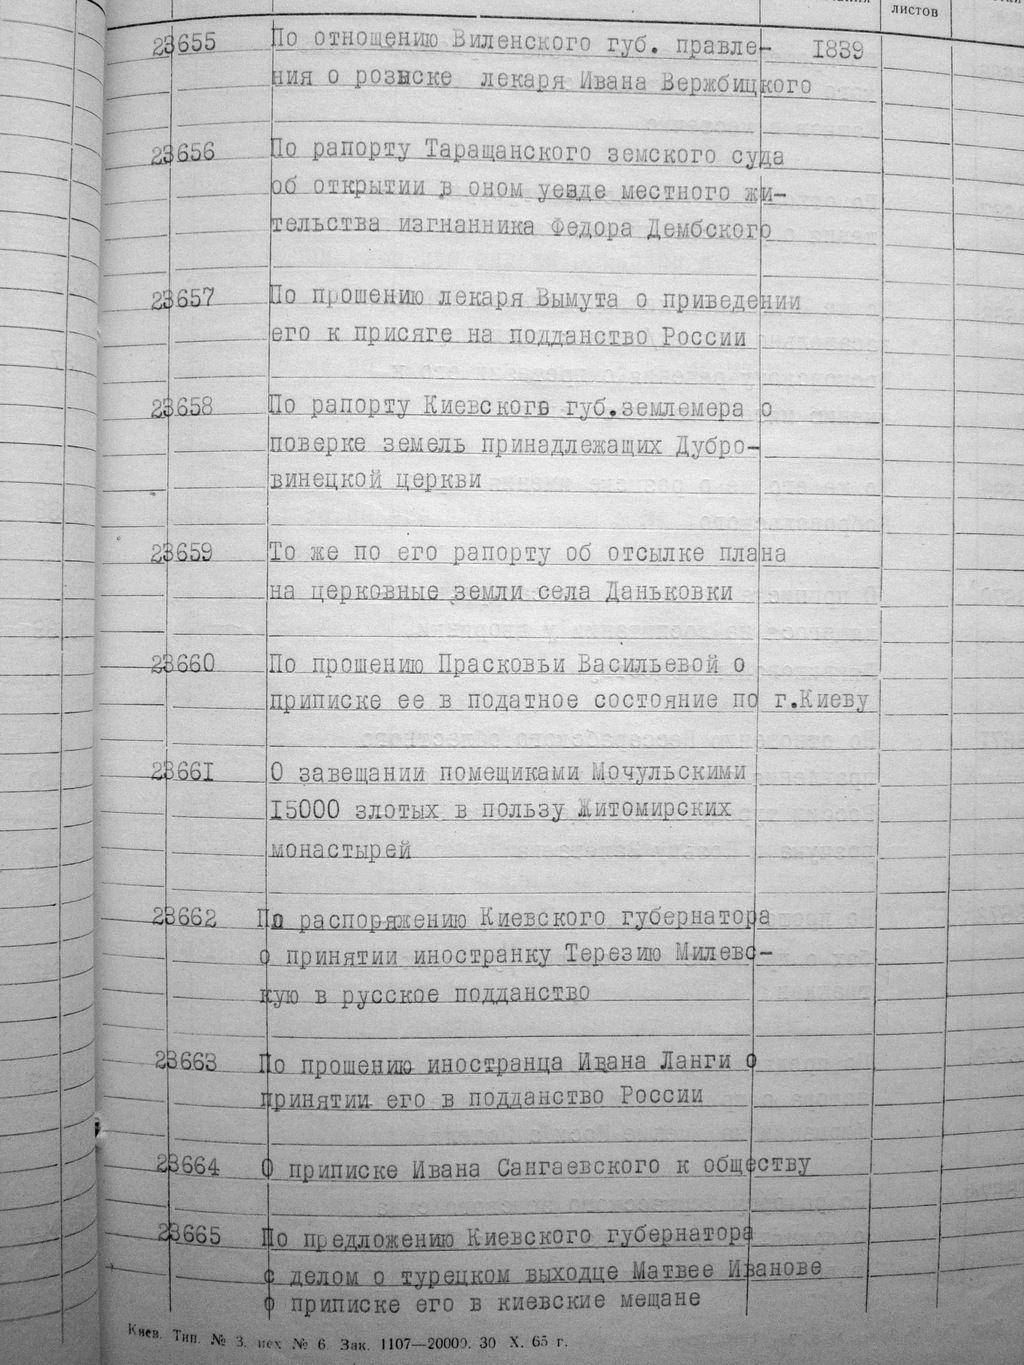 листов
23655 По отношению Виленского губ. правле- 1839
ния о розыске лекаря Ивана Вержбицкого
23656 По рапорту Таращанского земского суда
об открытии в оном уезде местного жи-
тельства изгнанника Федора Дембского
23657 По прошению лекаря Вымута о приведении
его к присяге на подданство России
23658 По рапорту Киевского губ.землемера о
поверке земель принадлежащих Дубро-
винецкой церкви
23659 То же по его рапорту об отсылке плана
на церковные земли села Даньковки
23660 По прошению Прасковьи Васильевой о
приписке ее в податное состояние по г.Киеву
23661 О завещании помещиками Мочульскими
15000 злотых в пользу Житомирских
монастырей
23662 По распоряжению Киевского губернатора
о принятии иностранку Терезию Милевс-
кую в русское подданство
23663 По прошению иностранца Ивана Ланги о
принятии его в подданство России
23664 О приписке Ивана Сангаевского к обществу
23665 По предложению Киевского губернатора
с делом о турецком выходце Матвее Иванове
о приписке его в киевские мещане
Киев. Тип. № 3. цех № 6 Зак. 1107—20000. 30 X. 65 г.